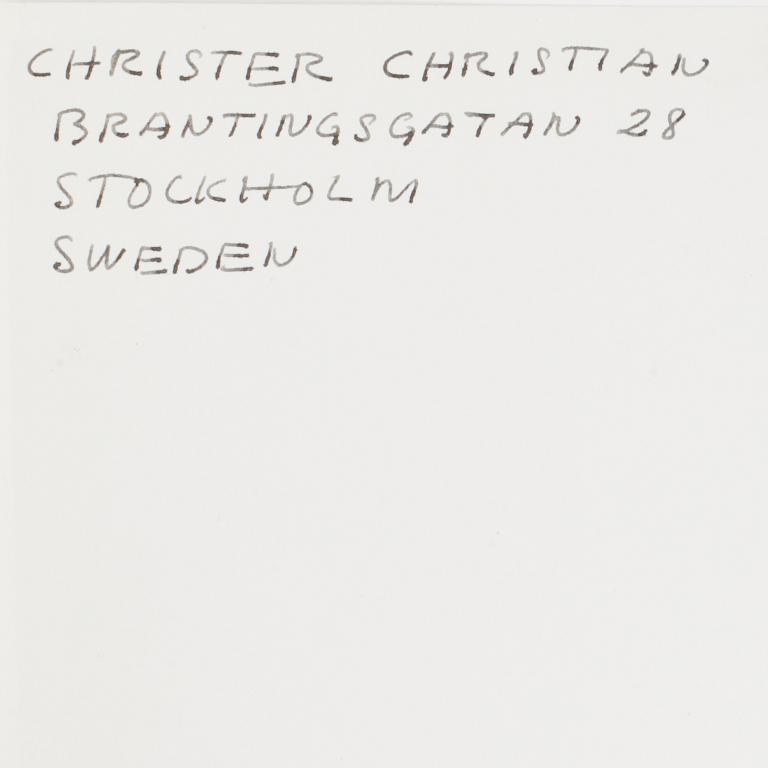 CHRISTER CHRISTIAN
BRANTINGSGATAN 28
STOCKHOLM
SWEDEN